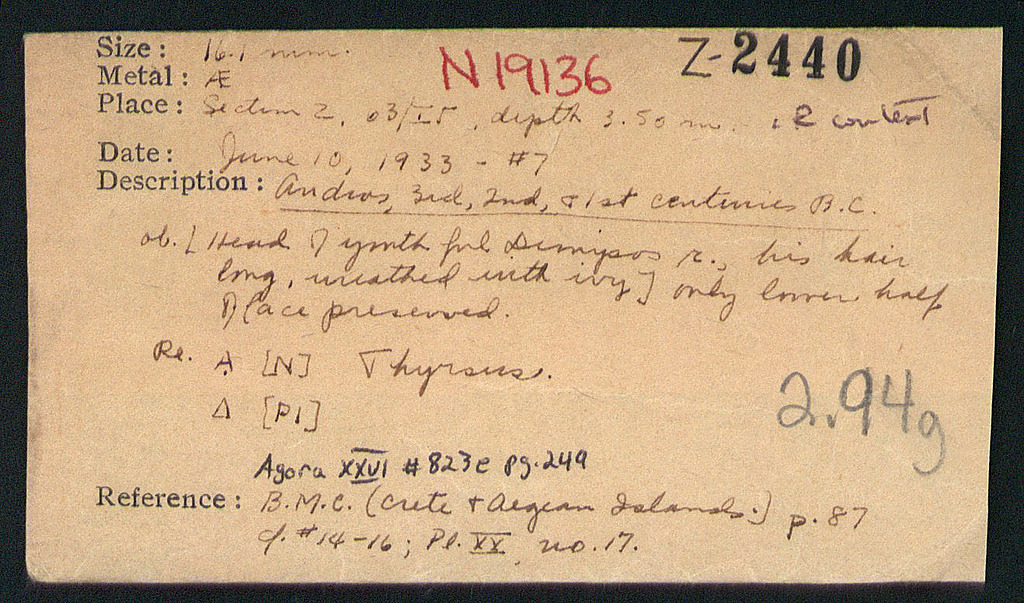 Size: 16.1 mm.
N19136
Z-2440
Metal: Æ
Place: Section Z, 03/ΙΕ, depth 3.50 m. LR context
Date: June 10, 1933 - #7
Description: Andros, 3rd, 2nd, + 1st centuries B.C.
ob. [Head of youthful Dionysos r., his hair
long, wreathed with ivy] only lower half
of face preserved.
Re. Α [Ν] Thyrsus.
Δ [ΡΙ]
2.94g
Agora XXVI #823e pg.249
Reference: B.M.C. (Crete + Aegean Islands.) p. 87
cf. #14-16; Pl. XX no. 17.